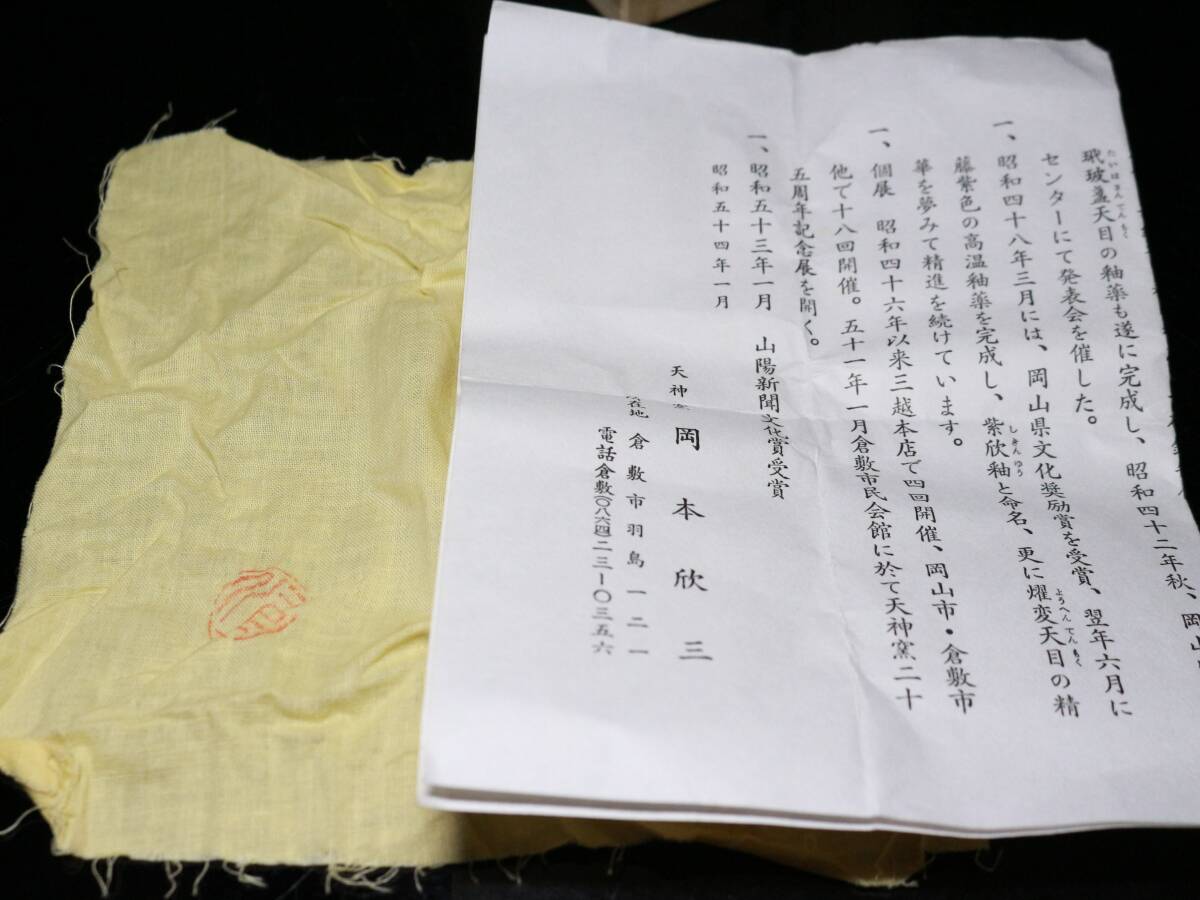 玳玻盞天目の釉薬も遂に完成し、昭和四十二年秋、岡山
たいはさんてんもく
センターにて発表会を催した。
一、昭和四十八年三月には、岡山県文化奨励賞を受賞、翌年六月に
藤紫色の高温釉薬を完成し、紫欣釉と命名、更に燿変天目の精
しきんゆう
ようへんてんもく
華を夢みて精進を続けています。
一、個展 昭和四十六年以来三越本店で四回開催、岡山市・倉敷市
他で十八回開催。五十一年一月倉敷市民会館に於て天神窯二十
五周年記念展を開く。
一、昭和五十三年一月 山陽新聞文化賞受賞
昭和五十四年一月
天神窯 岡本欣三
在地 倉敷市羽島一二一
電話倉敷(〇八六四)二三―〇三五六